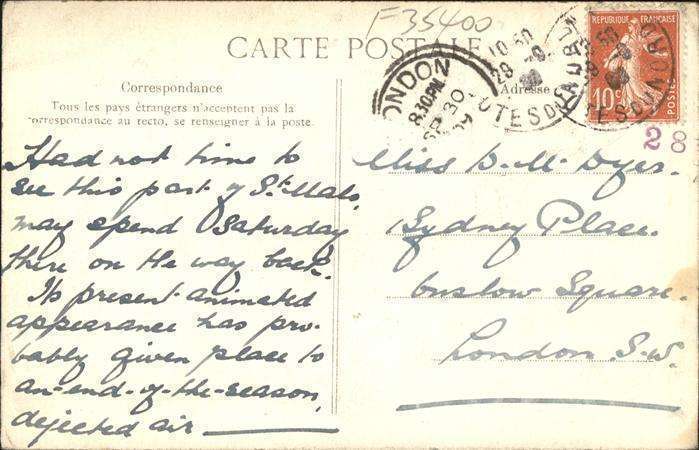 F35400
CARTE POSTALE
Correspondance
Tous les pays étrangers n'acceptent pas la
correspondance au recto, se renseigner à la poste.
Adresse
LONDON
8.30PM
SP 30
09
10 50
28
REPUBLIQUE FRANÇAISE
10c
POSTES
28
Had not time to
see this part of St. Malo,
may spend Saturday
there on the way back.
Its present animated
appearance has pro-
bably given place to
an-end-of-the-season,
dejected air
Miss D. M. Dyer.
Sydney Place.
Onslow Square.
London S.W.